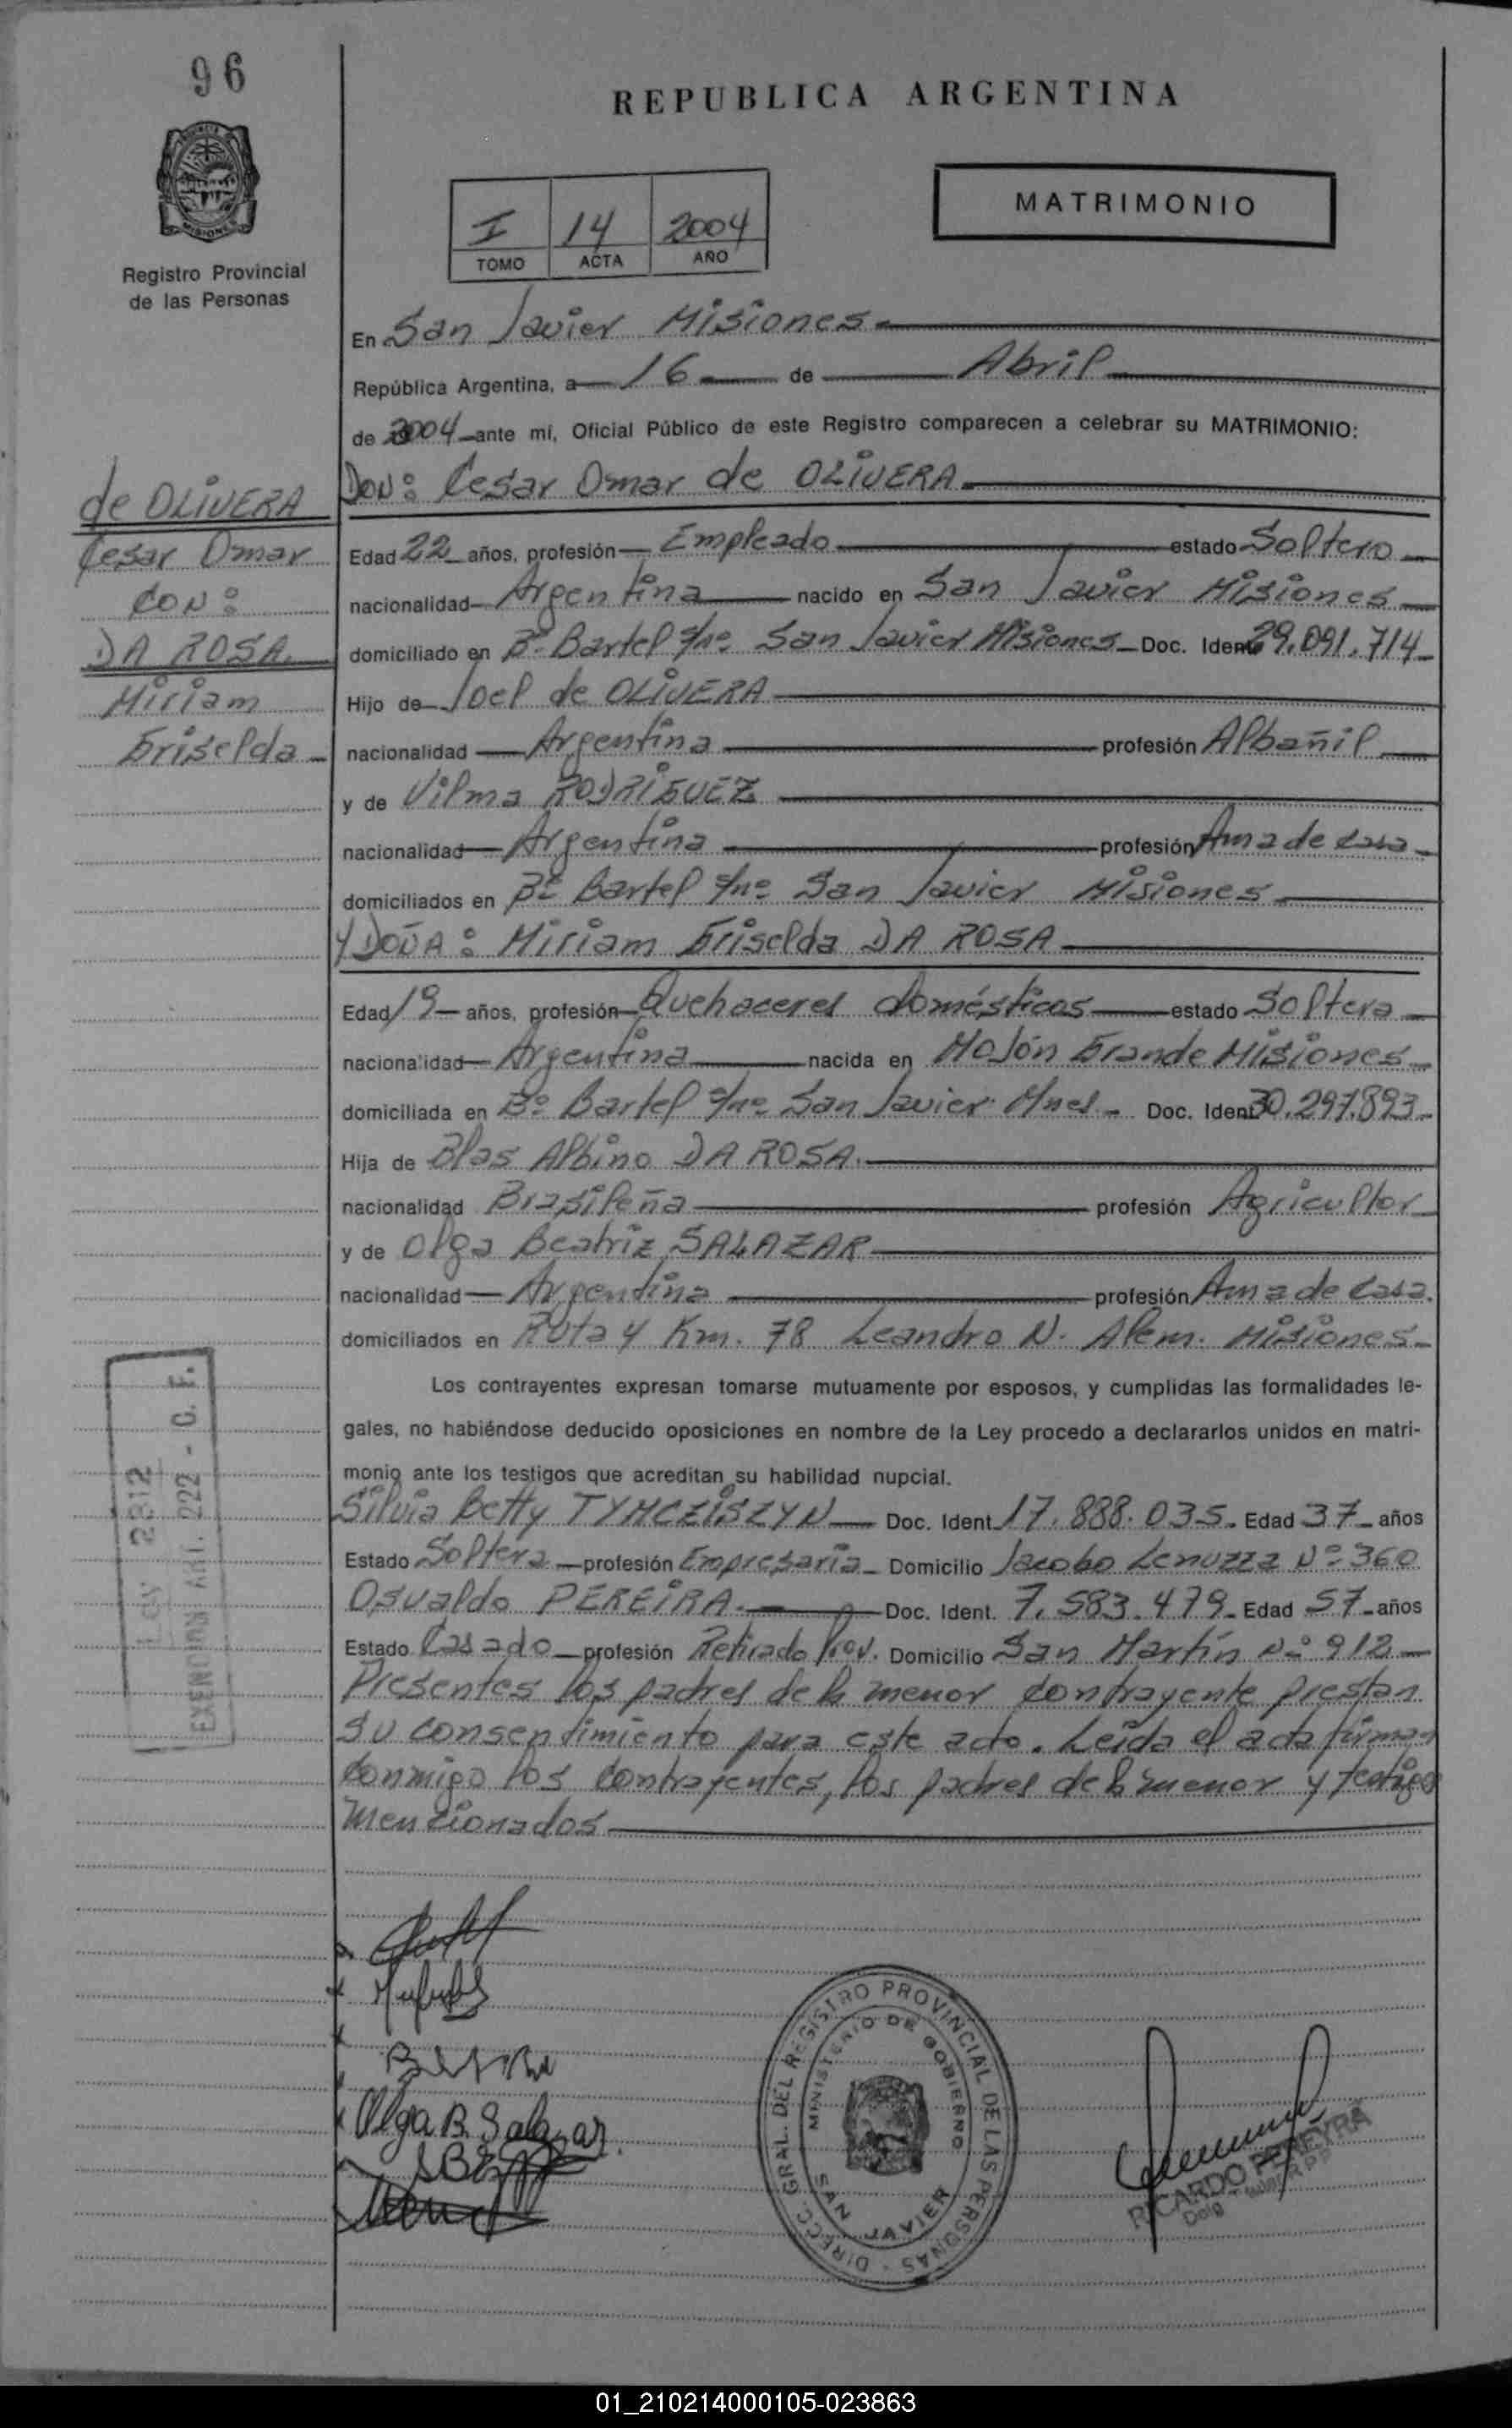 96
REPUBLICA ARGENTINA
MATRIMONIO
I 14 2004
TOMO ACTA AÑO
MISIONES
Registro Provincial
de las Personas
En San Javier Misiones
República Argentina, a 16 de Abril
de 2004 ante mí, Oficial Público de este Registro comparecen a celebrar su MATRIMONIO:
DON: Cesar Omar de OLIVERA
de OLIVERA
Cesar Omar
CON:
DA ROSA
Miriam
Griselda
Edad 22 años, profesión Empleado estado Soltero
nacionalidad Argentina nacido en San Javier Misiones
domiciliado en Bº Bartel s/nº San Javier Misiones Doc. Ident 29.091.714
Hijo de Joel de OLIVERA
nacionalidad Argentina profesión Albañil
y de Vilma RODRIGUEZ
nacionalidad Argentina profesión Ama de casa
domiciliados en Bº Bartel s/nº San Javier Misiones
Y DOÑA: Miriam Griselda DA ROSA
Edad 19 años, profesión Quehaceres domésticos estado Soltera
nacionalidad Argentina nacida en Mojón Grande Misiones
domiciliada en Bº Bartel s/nº San Javier Mnes Doc. Ident 30.297.893
Hija de Blas Albino DA ROSA
nacionalidad Brasileña profesión Agricultor
y de Olga Beatriz SALAZAR
nacionalidad Argentina profesión Ama de casa
domiciliados en Ruta 4 Km. 78 Leandro N. Alem. Misiones
Los contrayentes expresan tomarse mutuamente por esposos, y cumplidas las formalidades le-
gales, no habiéndose deducido oposiciones en nombre de la Ley procedo a declararlos unidos en matri-
monio ante los testigos que acreditan su habilidad nupcial.
Silvia Betty TYMCZISZYN Doc. Ident 17.888.035 Edad 37 años
Estado Soltera profesión Empresaria Domicilio Jacobo Lenuzza Nº 360
Osvaldo PEREIRA Doc. Ident. 7.583.479 Edad 57 años
Estado Casado profesión Retirado Prov. Domicilio San Martín Nº 912
Presentes los padres de la menor contrayente prestan
su consentimiento para este acto. Leída el acta firman
conmigo los contrayentes, los padres de la menor y testigos
mencionados
LEY 2812
EXENCION ART. 222 - C. F.
Olga B. Salazar
DIRECC. GRAL. DEL REGISTRO PROVINCIAL DE LAS PERSONAS
MINISTERIO DE GOBIERNO
SAN JAVIER
RICARDO PEREYRA
01_210214000105-023863